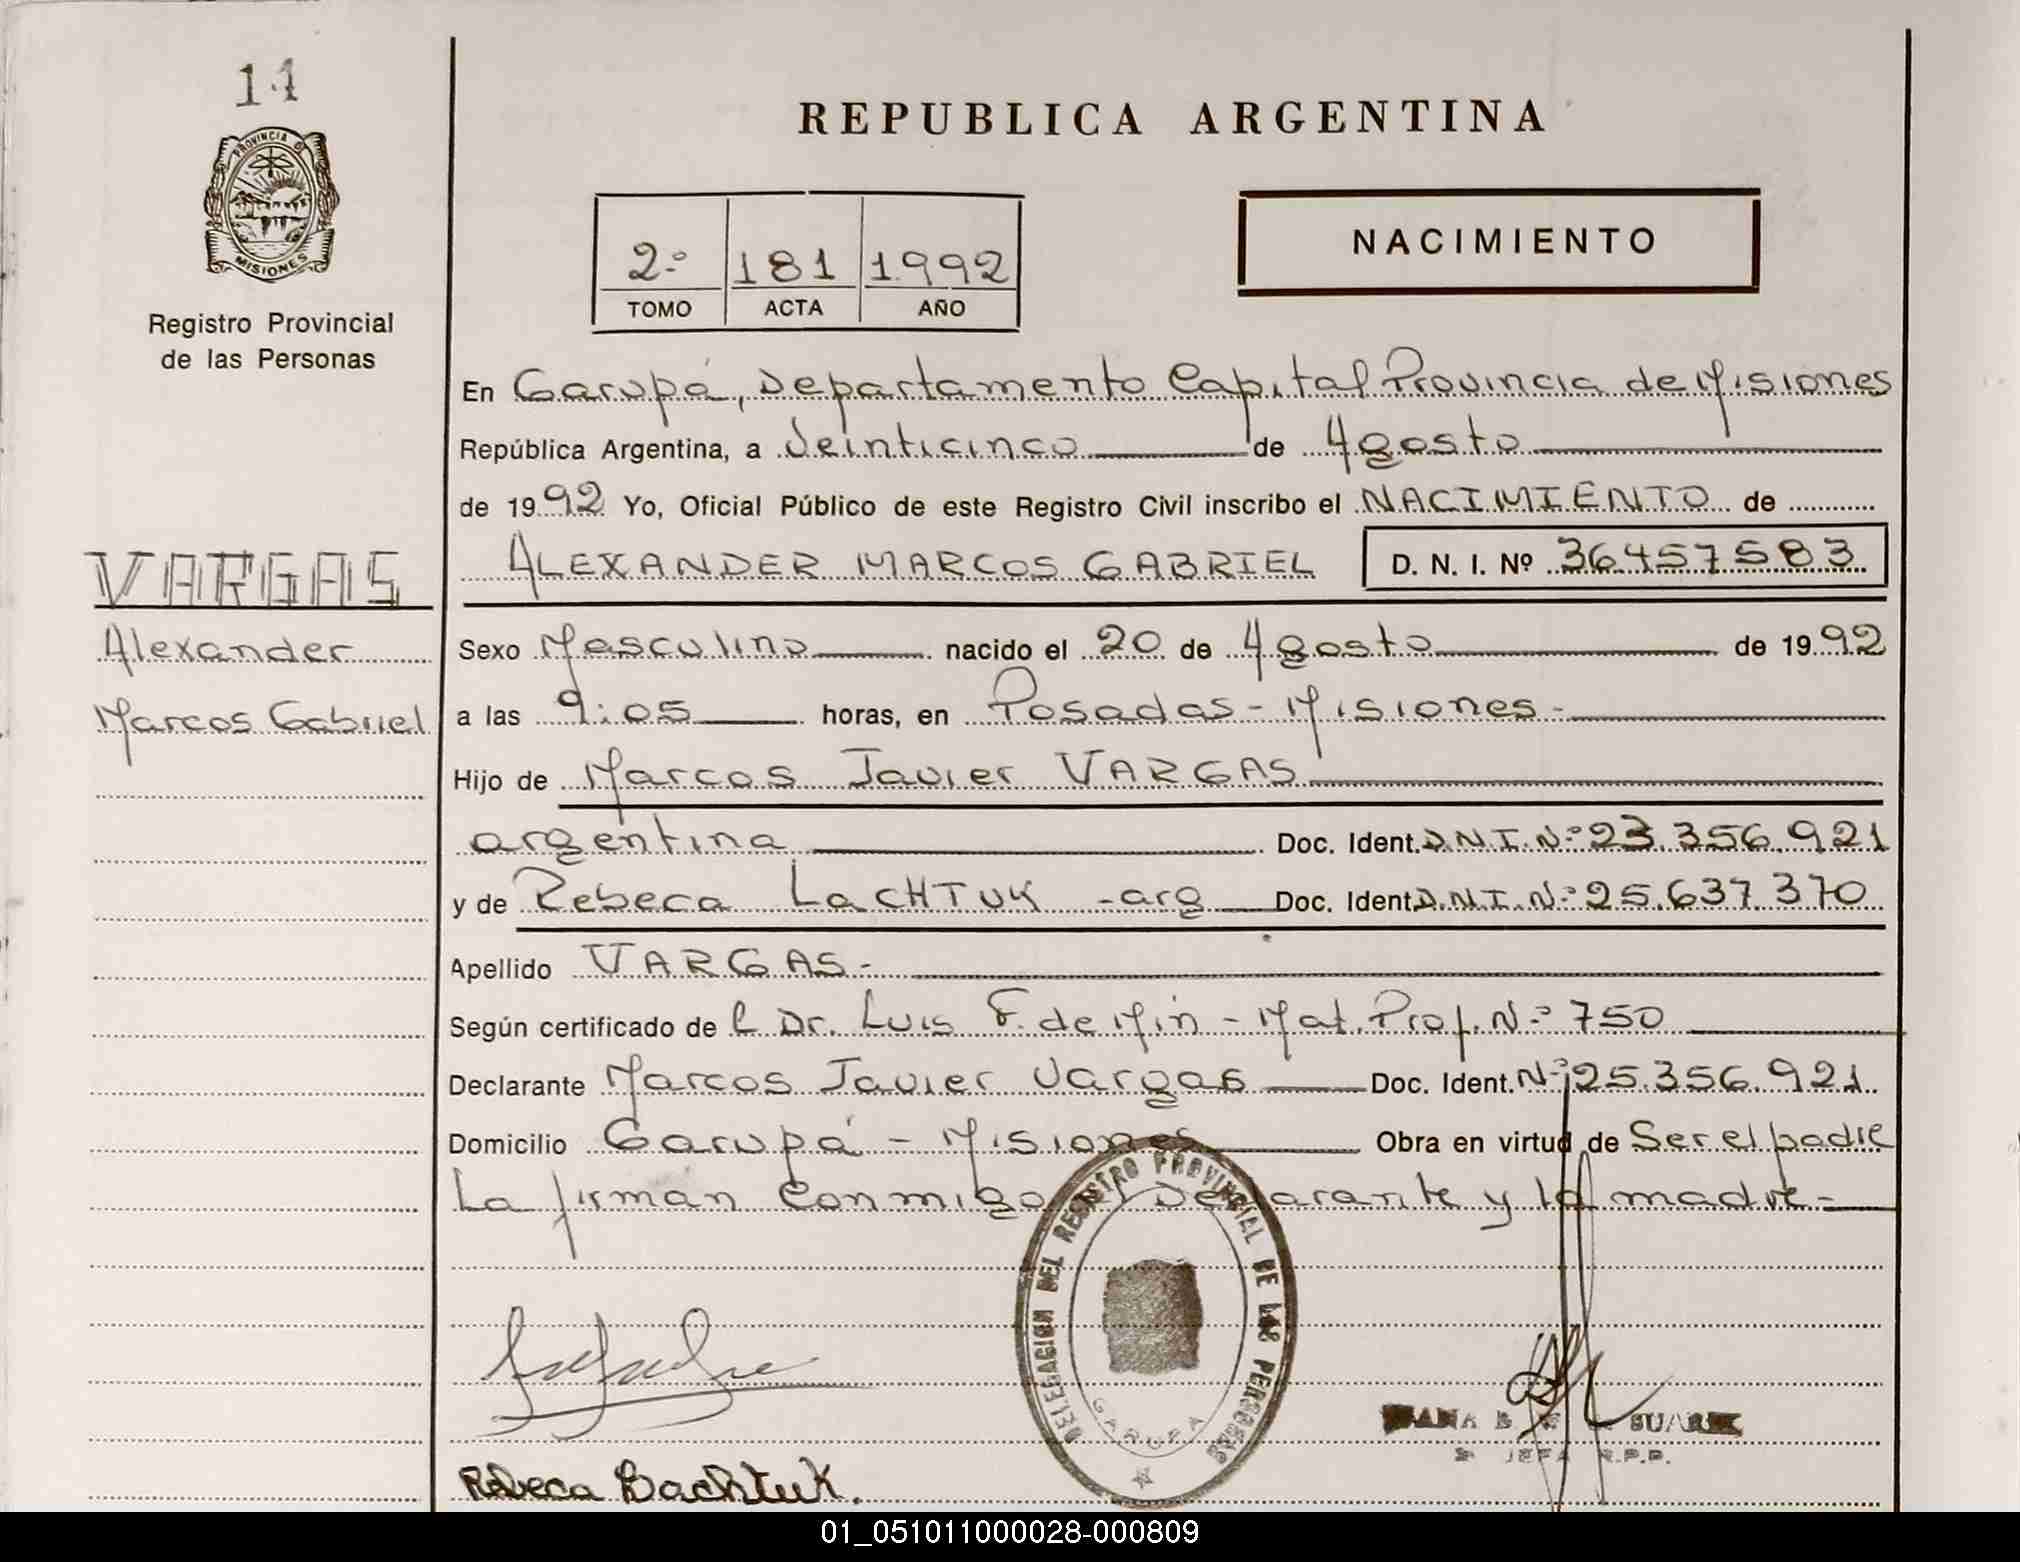 14
PROVINCIA D
MISIONES
Registro Provincial
de las Personas
REPUBLICA ARGENTINA
2º 181 1992
TOMO ACTA AÑO
NACIMIENTO
En Garupá, Departamento Capital Provincia de Misiones
República Argentina, a Veinticinco de Agosto
de 1992 Yo, Oficial Público de este Registro Civil inscribo el NACIMIENTO de
ALEXANDER MARCOS GABRIEL D. N. I. Nº 36457583
VARGAS
Alexander
Marcos Gabriel
Sexo Masculino nacido el 20 de Agosto de 1992
a las 9:05 horas, en Posadas - Misiones -
Hijo de Marcos Javier VARGAS
argentina Doc. Ident. D.N.I. Nº 23.356.921
y de Rebeca LaCHTUK - arg Doc. Ident. D.N.I. Nº 25.637.370
Apellido VARGAS -
Según certificado de l Dr. Luis F. de Min - Mat. Prof. Nº 750
Declarante Marcos Javier Vargas Doc. Ident. Nº 25.356.921
Domicilio Garupá - Misiones Obra en virtud de Ser el padre
La firman conmigo Declarante y la madre -
DELEGACION DEL REGISTRO PROVINCIAL DE LAS PERSONAS
GARUPA
SUAREZ
JEFA R.P.P.
Rebeca Lachtuk.
01_051011000028-000809